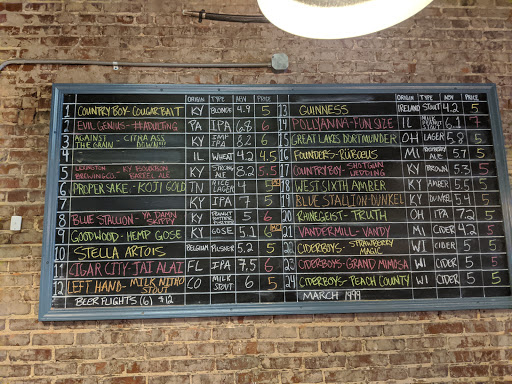 ORIGIN TYPE ABV PRICE
1 COUNTRY BOY- COUGAR BAIT KY BLONDE 4.9 5
2 EVIL GENIUS- #ADULTING PA IPA 6.8 6
3 AGAINST THE GRAIN- CITRA ASS DOWN!!! KY IMP IPA 8.2 6
4 IL WHEAT 4.2 4.5
5 LEXINGTON BREWING CO. KY BOURBON BARREL ALE KY STRONG ALE 8.2 5.5
6 PROPER SAKE- KOJI GOLD TN RICE LAGER 4
7 KY IPA 7 5
8 BLUE STALLION- KY 5 6
9 GOODWOOD- HEMP GOSE KY GOSE 5.1
10 STELLA ARTOIS BELGIUM PILSNER 5.2 5
11 CIGAR CITY- JAI ALAI FL IPA 7.5 6
12 LEFT HAND- MILK NITRO STOUT CO MILK STOUT 6 5
BEER FLIGHTS (6) $12
ORIGIN TYPE ABV PRICE
13 GUINNESS IRELAND STOUT 4.2 5
14 POLLYANNA- FUN SIZE IL MILK STOUT 6.1 7
15 GREAT LAKES DORTMUNDER OH LAGER 5.8 5
16 FOUNDERS- RÜBAEUS MI RASPBERRY ALE 5.7 5
17 COUNTRY BOY- SHOTGUN WEDDING KY BROWN 5.3 5
18 WEST SIXTH AMBER KY AMBER 5.5 5
19 BLUE STALLION- DUNKEL KY DUNKEL 5.4 5
20 RHINEGEIST- TRUTH OH IPA 7.2 5
21 VANDER MILL- VANDY MI CIDER 4.2 5
22 CIDERBOYS- STRAWBERRY MAGIC WI CIDER 5 5
23 CIDERBOYS- GRAND MIMOSA WI CIDER 5 5
24 CIDERBOYS- PEACH COUNTY WI CIDER 5 5
MARCH 1999